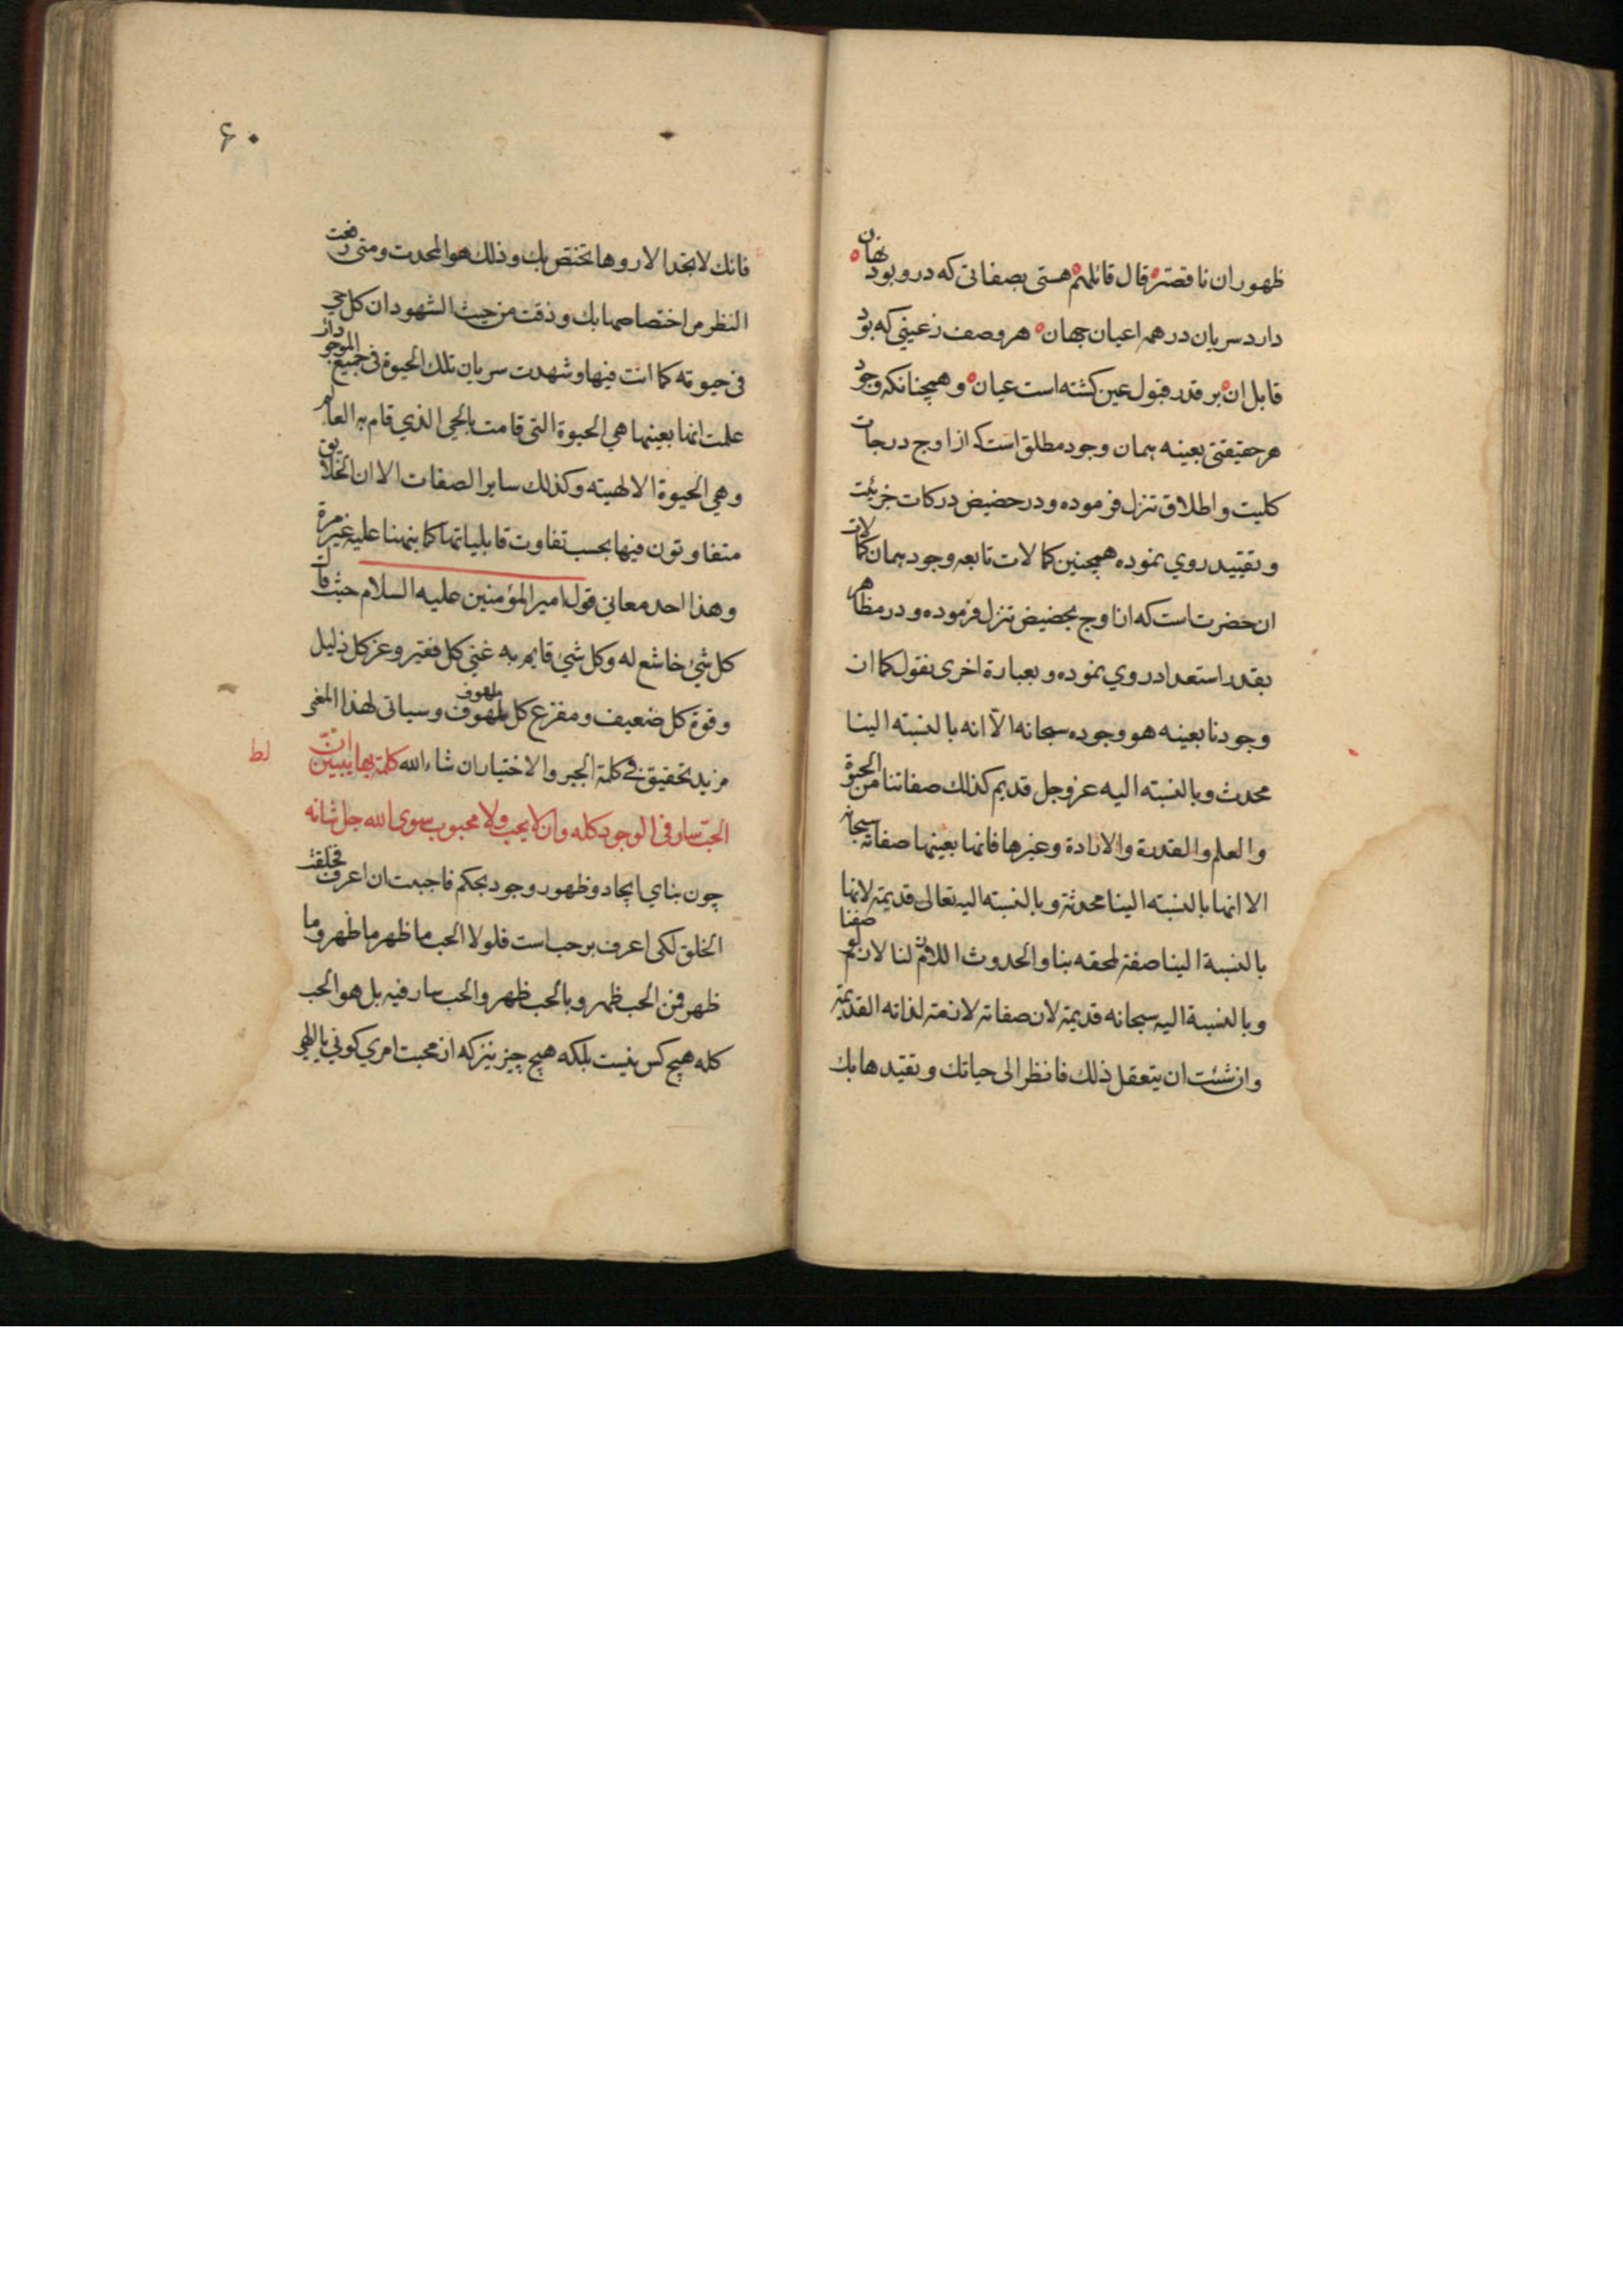 ظهوران ناقصتر قال قائلهم هستی بصفاتی که درو بود نهان
دارد سریان در همه اعیان جهان هر وصف زعینی که بود
قابل ان بر قدر قبول عین کشته است عیان و همچنانکه وجود
هر حقیقتی بعینه همان وجود مطلق است که از اوج درجات
کلیت و اطلاق تنزل فرموده و در حضیض درکات جزئیت
و تقیید روی نموده همچنین کمالات تابعه وجود همان کمالات
ان حضرت است که از اوج بحضیض تنزل فرموده و در مظاهر
بقدر استعداد روی نموده و بعبارة اخری نقول کما ان
وجودنا بعینه هو وجوده سبحانه الا انه بالنسبته الینا
محدث و بالنسبته الیه عز و جل قدیم کذلك صفاتنا من الحیوة
والعلم والقدرة والارادة وغیرها فانها بعینها صفاته سبحانه
الا انها بالنسبته الینا محدثة و بالنسبته الیه تعالی قدیمة لانها
بالنسبة الینا صفة لحقه بنا والحدوث اللازم لنا لازم لوصفنا
وبالنسبة الیه سبحانه قدیمة لان صفاته لازمة لذاته القدیمة
وان شئت ان یتعقل ذلك فانظر الی حیاتك وتقیدها بك
۶۰
فانك لا تجد الا روها تختص بك وذلك هو المحدث ومتی رفعت
النظر من اختصاصها بك وذقت من حیث الشهود ان کل حی
فی حیوته کما انت فیها وشهدت سریان تلك الحیوة فی جمیع الموجودات
علمت انها بعینها هی الحیوة التی قامت بالحی الذی قام به العالم
وهی الحیوة الالهیته وکذلك سایر الصفات الا ان الخلایق
متفاوتون فیها بحسب تفاوت قابلیاتها کما نبهنا علیه غیر مرة
وهذا احد معانی قول امیر المؤمنین علیه السلام حیث قال
کل شئ خاشع له وکل شئ قایم به غنی کل فقیر وعز کل ذلیل
وقوة کل ضعیف ومفزع کل ملهوف ملهوف وسیاتی لهذا المعنی
مزید تحقیق فی کلمة الجبر والاختیار ان شاء الله کلمة بها یتبین ان
لط
الحب سار فی الوجود کله وان لا یحب ولا محبوب سوی الله جل شانه
چون بنای ایجاد و ظهور وجود بحکم فاحببت ان اعرف فخلقت
الخلق لکی اعرف بر حب است فلولا الحب ما ظهر ما ظهر وما
ظهر فمن الحب ظهر وبالحب ظهر والحب سار فیه بل هو الحب
کله هیچ کس نیست بلکه هیچ چیز نیز که از محبت امری کونی یا الهی